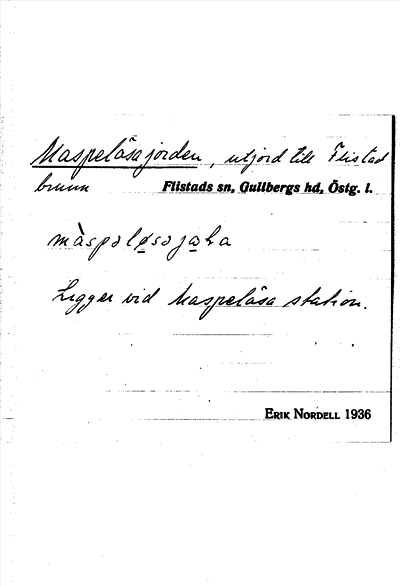 Maspelösajorden, utjord till Flistad
brunn Flistads sn, Gullbergs hd, Östg. l.
màspəløsəjɑ
Ligger vid Maspelösa station.
ERIK NORDELL 1936